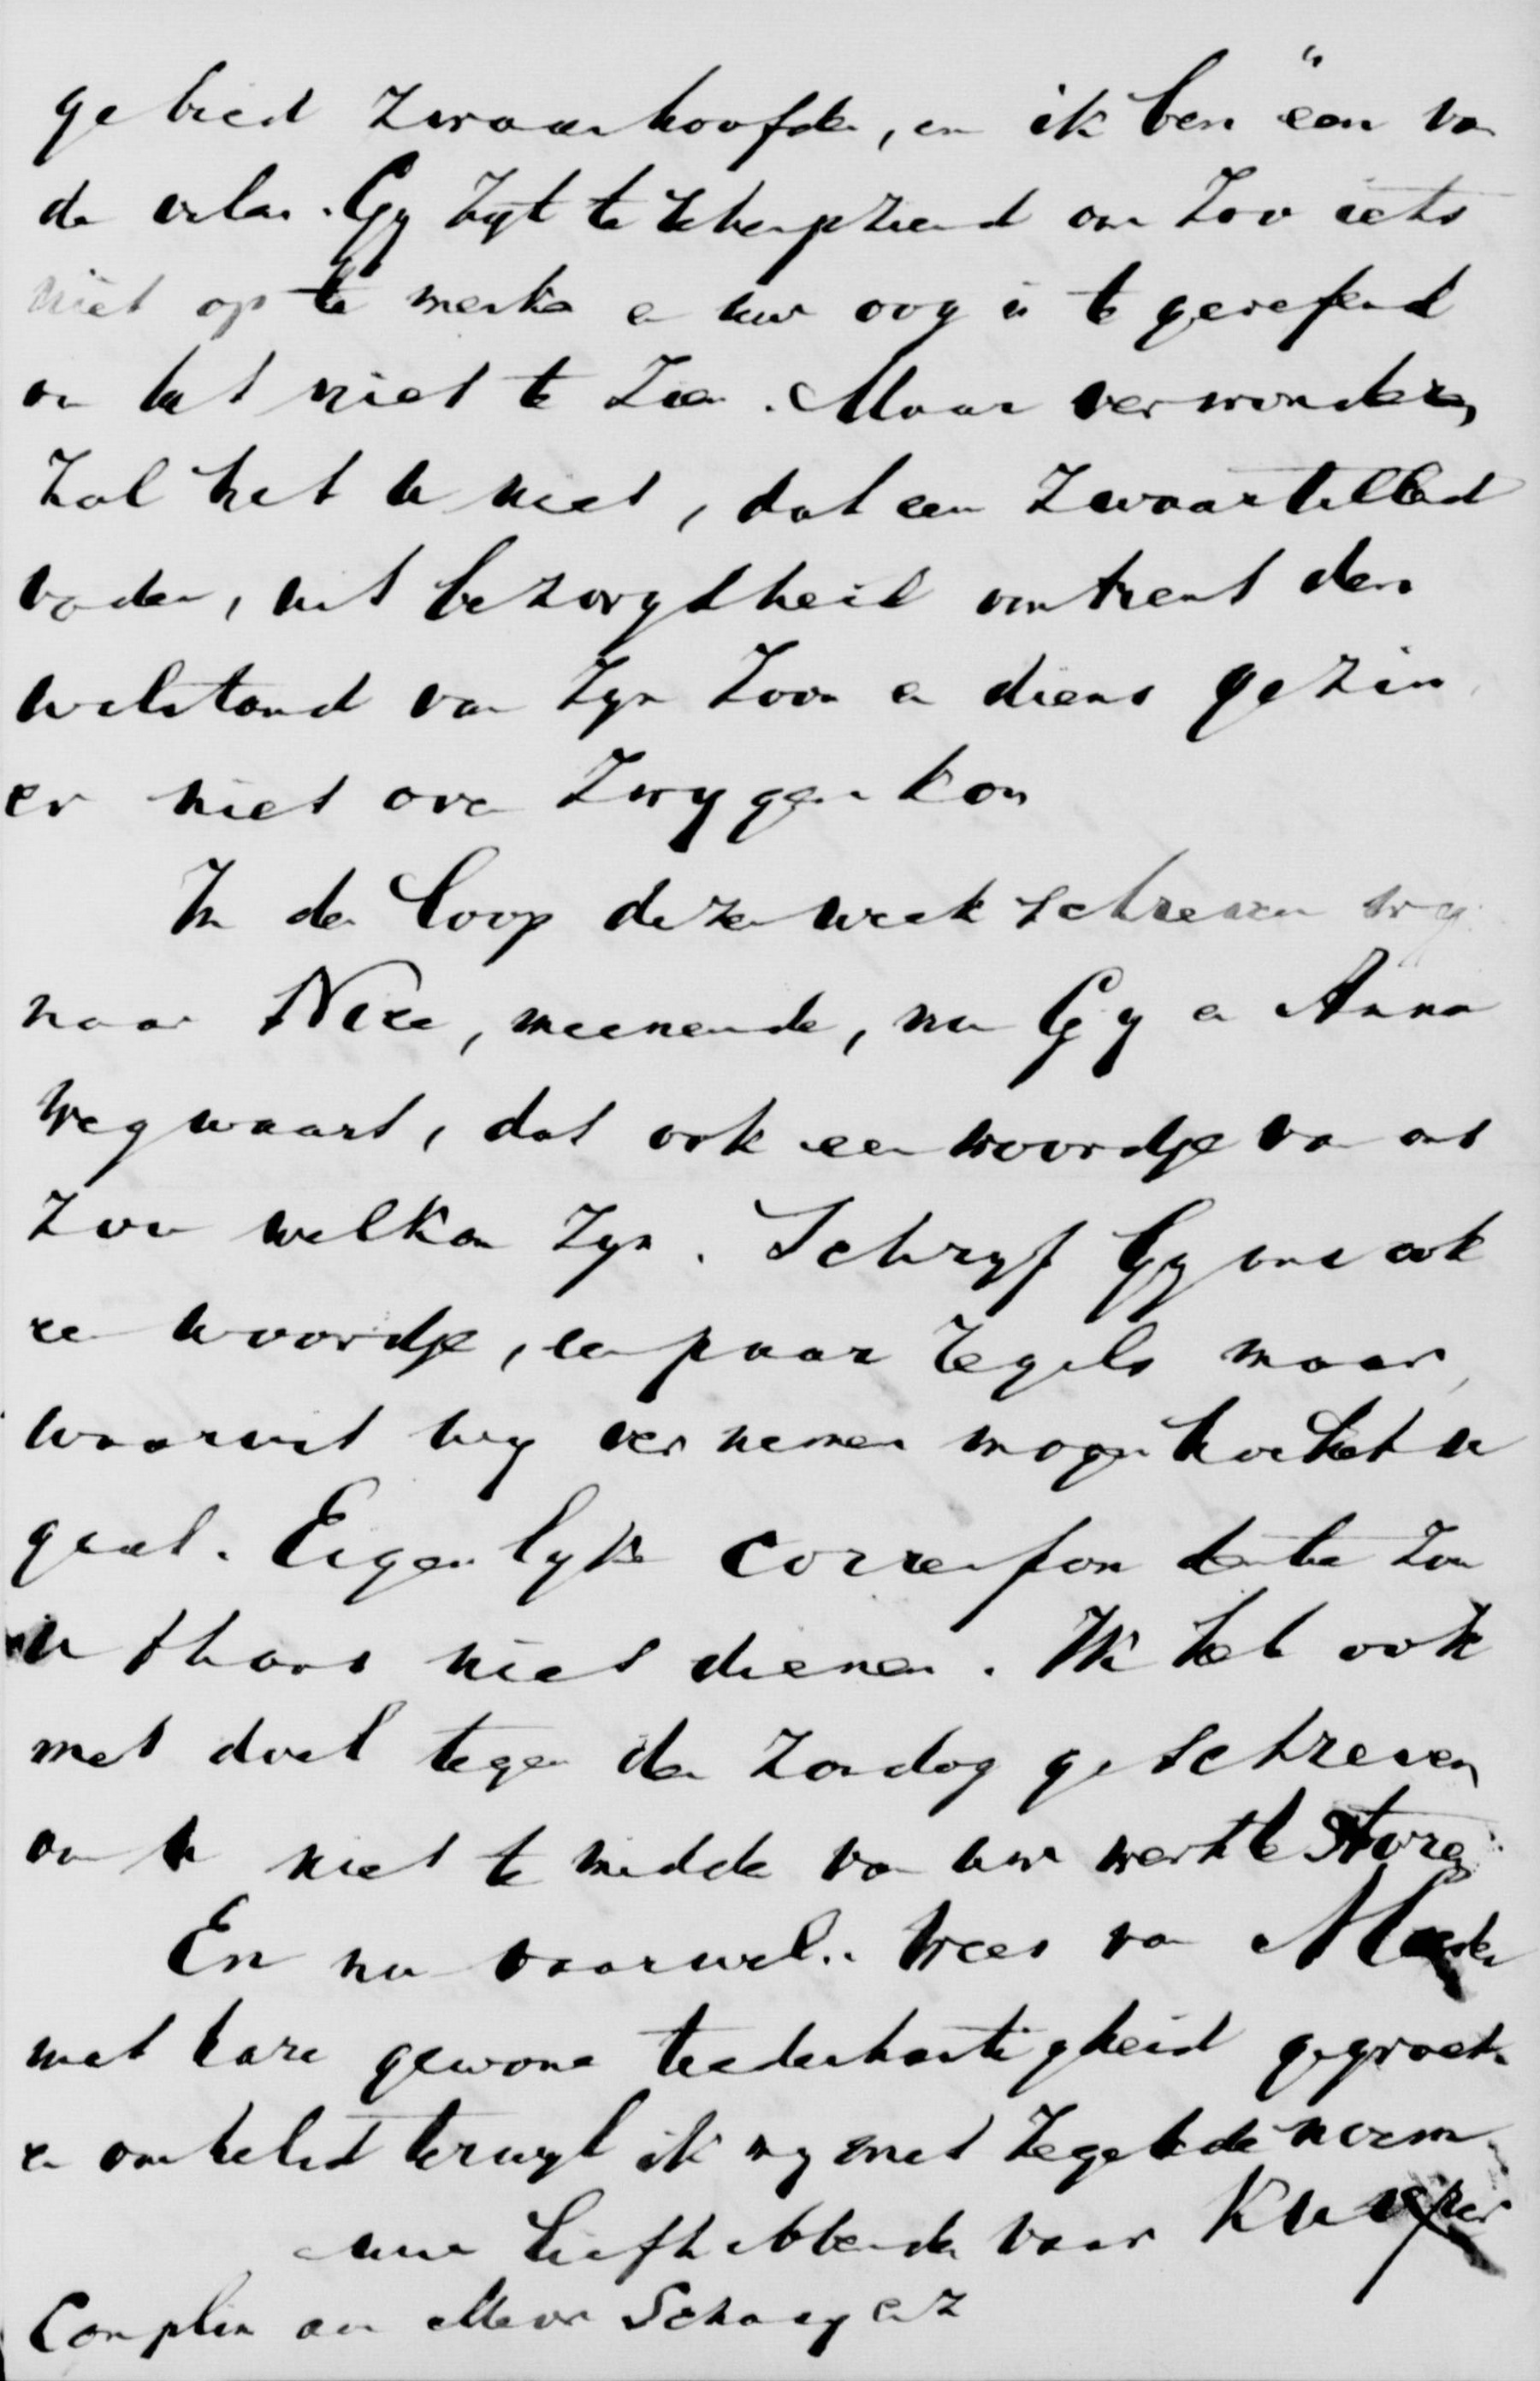 gebied zwaarhoofden, en ik ben één van
de velen. Gy zyt te scherpziend om zoo iets
niet op te merken en uw oog is te geoefend
om het niet te zien. Maar verwonderen
zal het u niet, dat een zwaartillend
vader, uit bezorgdheid omtrent den
welstand van zyn zoon en diens gezin
er niet over zwygen kon
In den loop dezer week schreven wy
naar Nice, meenende, nu Gy en Anna
weg waart, dat ook een woordje van ons
zou welkom zyn. Schryf Gy ons ook
een woordje, een paar regels maar,
waaruit wy vernemen mogen hoe het u
gaat. Eigenlyke correspondentie zou
u thans niet dienen. Ik heb ook
met doel tegen den Zondag geschreven
om u niet te midden van uw werk te storen
En nu vaarwel. Wees van Moeder
met hare gewone teederhartigheid gegroet
en omhelsd terwyl ik my met zegebede noem
uw liefhebbende vader Kuyper
Complim aan Mevr